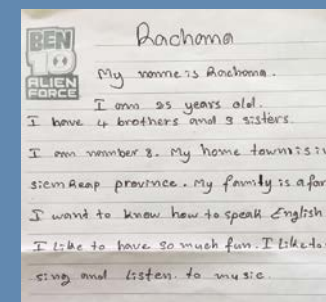 BEN
10
ALIEN
FORCE
Rachana
My name is Rachana.
I am 25 years old.
I have 4 brothers and 3 sisters.
I am number 8. My home town is in
siem Reap province. My family is a far
I want to know how to speak English
I Like to have so much fun. I Like to
sing and listen. to music.